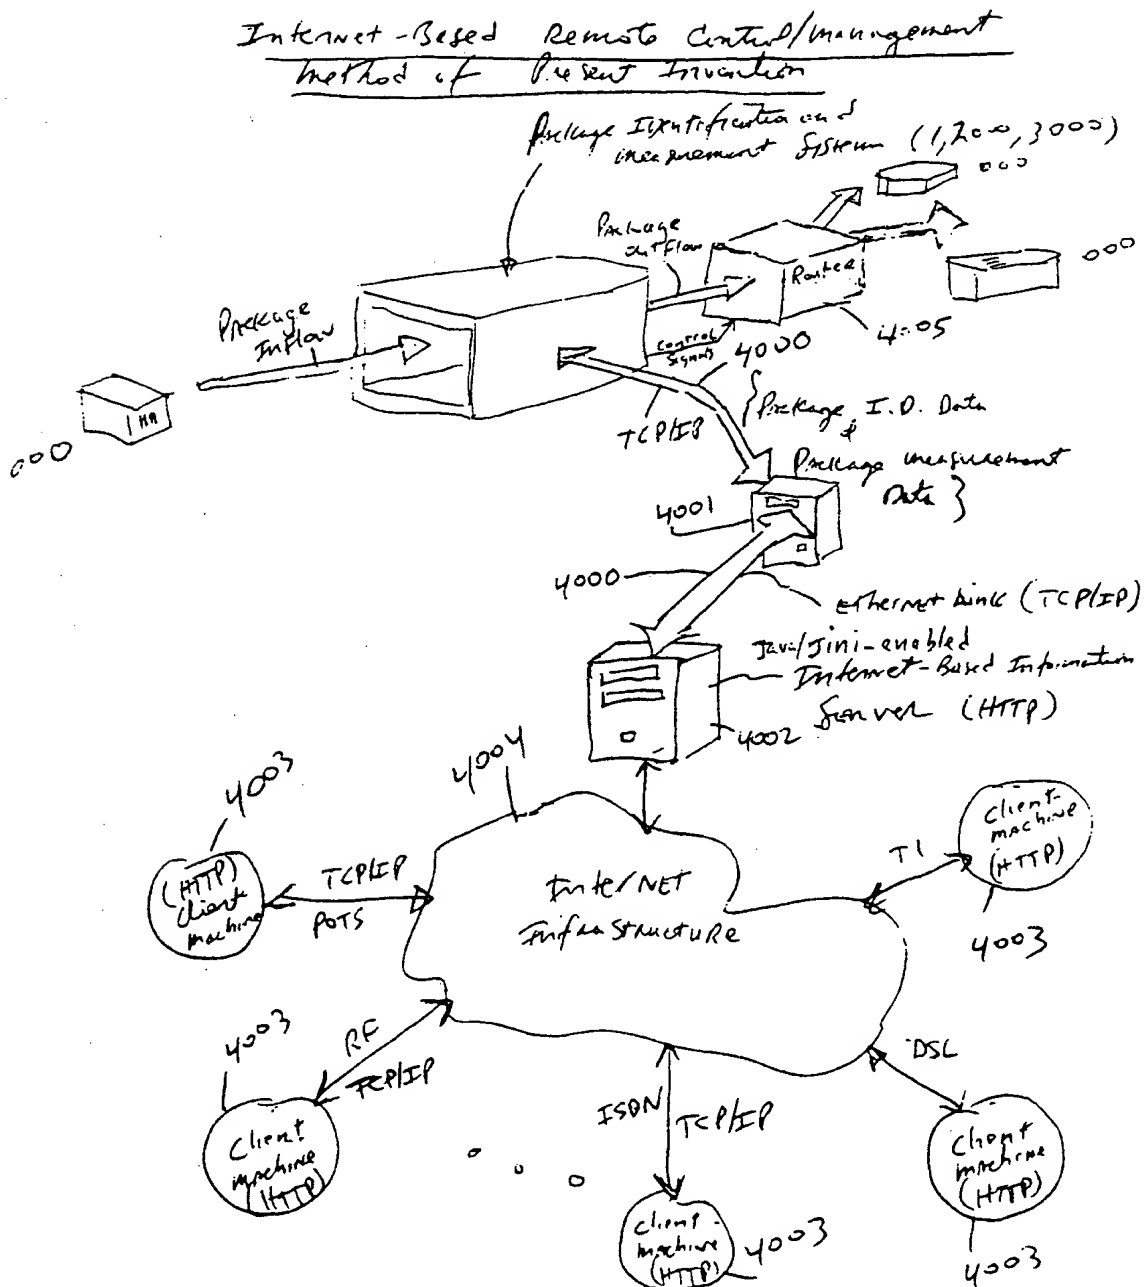 Internet-Based Remote Control/Management
Method of Present Invention
Package Identification and
Measurement System (1,2000,3000)
Package
Outflow
Router
Package
Inflow
Control
Signals
4000
4005
TCP/IP
{Package I.D. Data
&
Package Measurement
Data}
4001
4000
Ethernet Link (TCP/IP)
Java/Jini-enabled
Internet-Based Information
Server (HTTP)
4002
4004
4003
(HTTP)
Client
machine
TCP/IP
POTS
InterNET
InfraStructuRe
T1
Client-
machine
(HTTP)
4003
4003
RF
TCP/IP
Client
machine
(HTTP)
ISDN
TCP/IP
Client-
machine
(HTTP)
4003
DSL
Client
machine
(HTTP)
4003